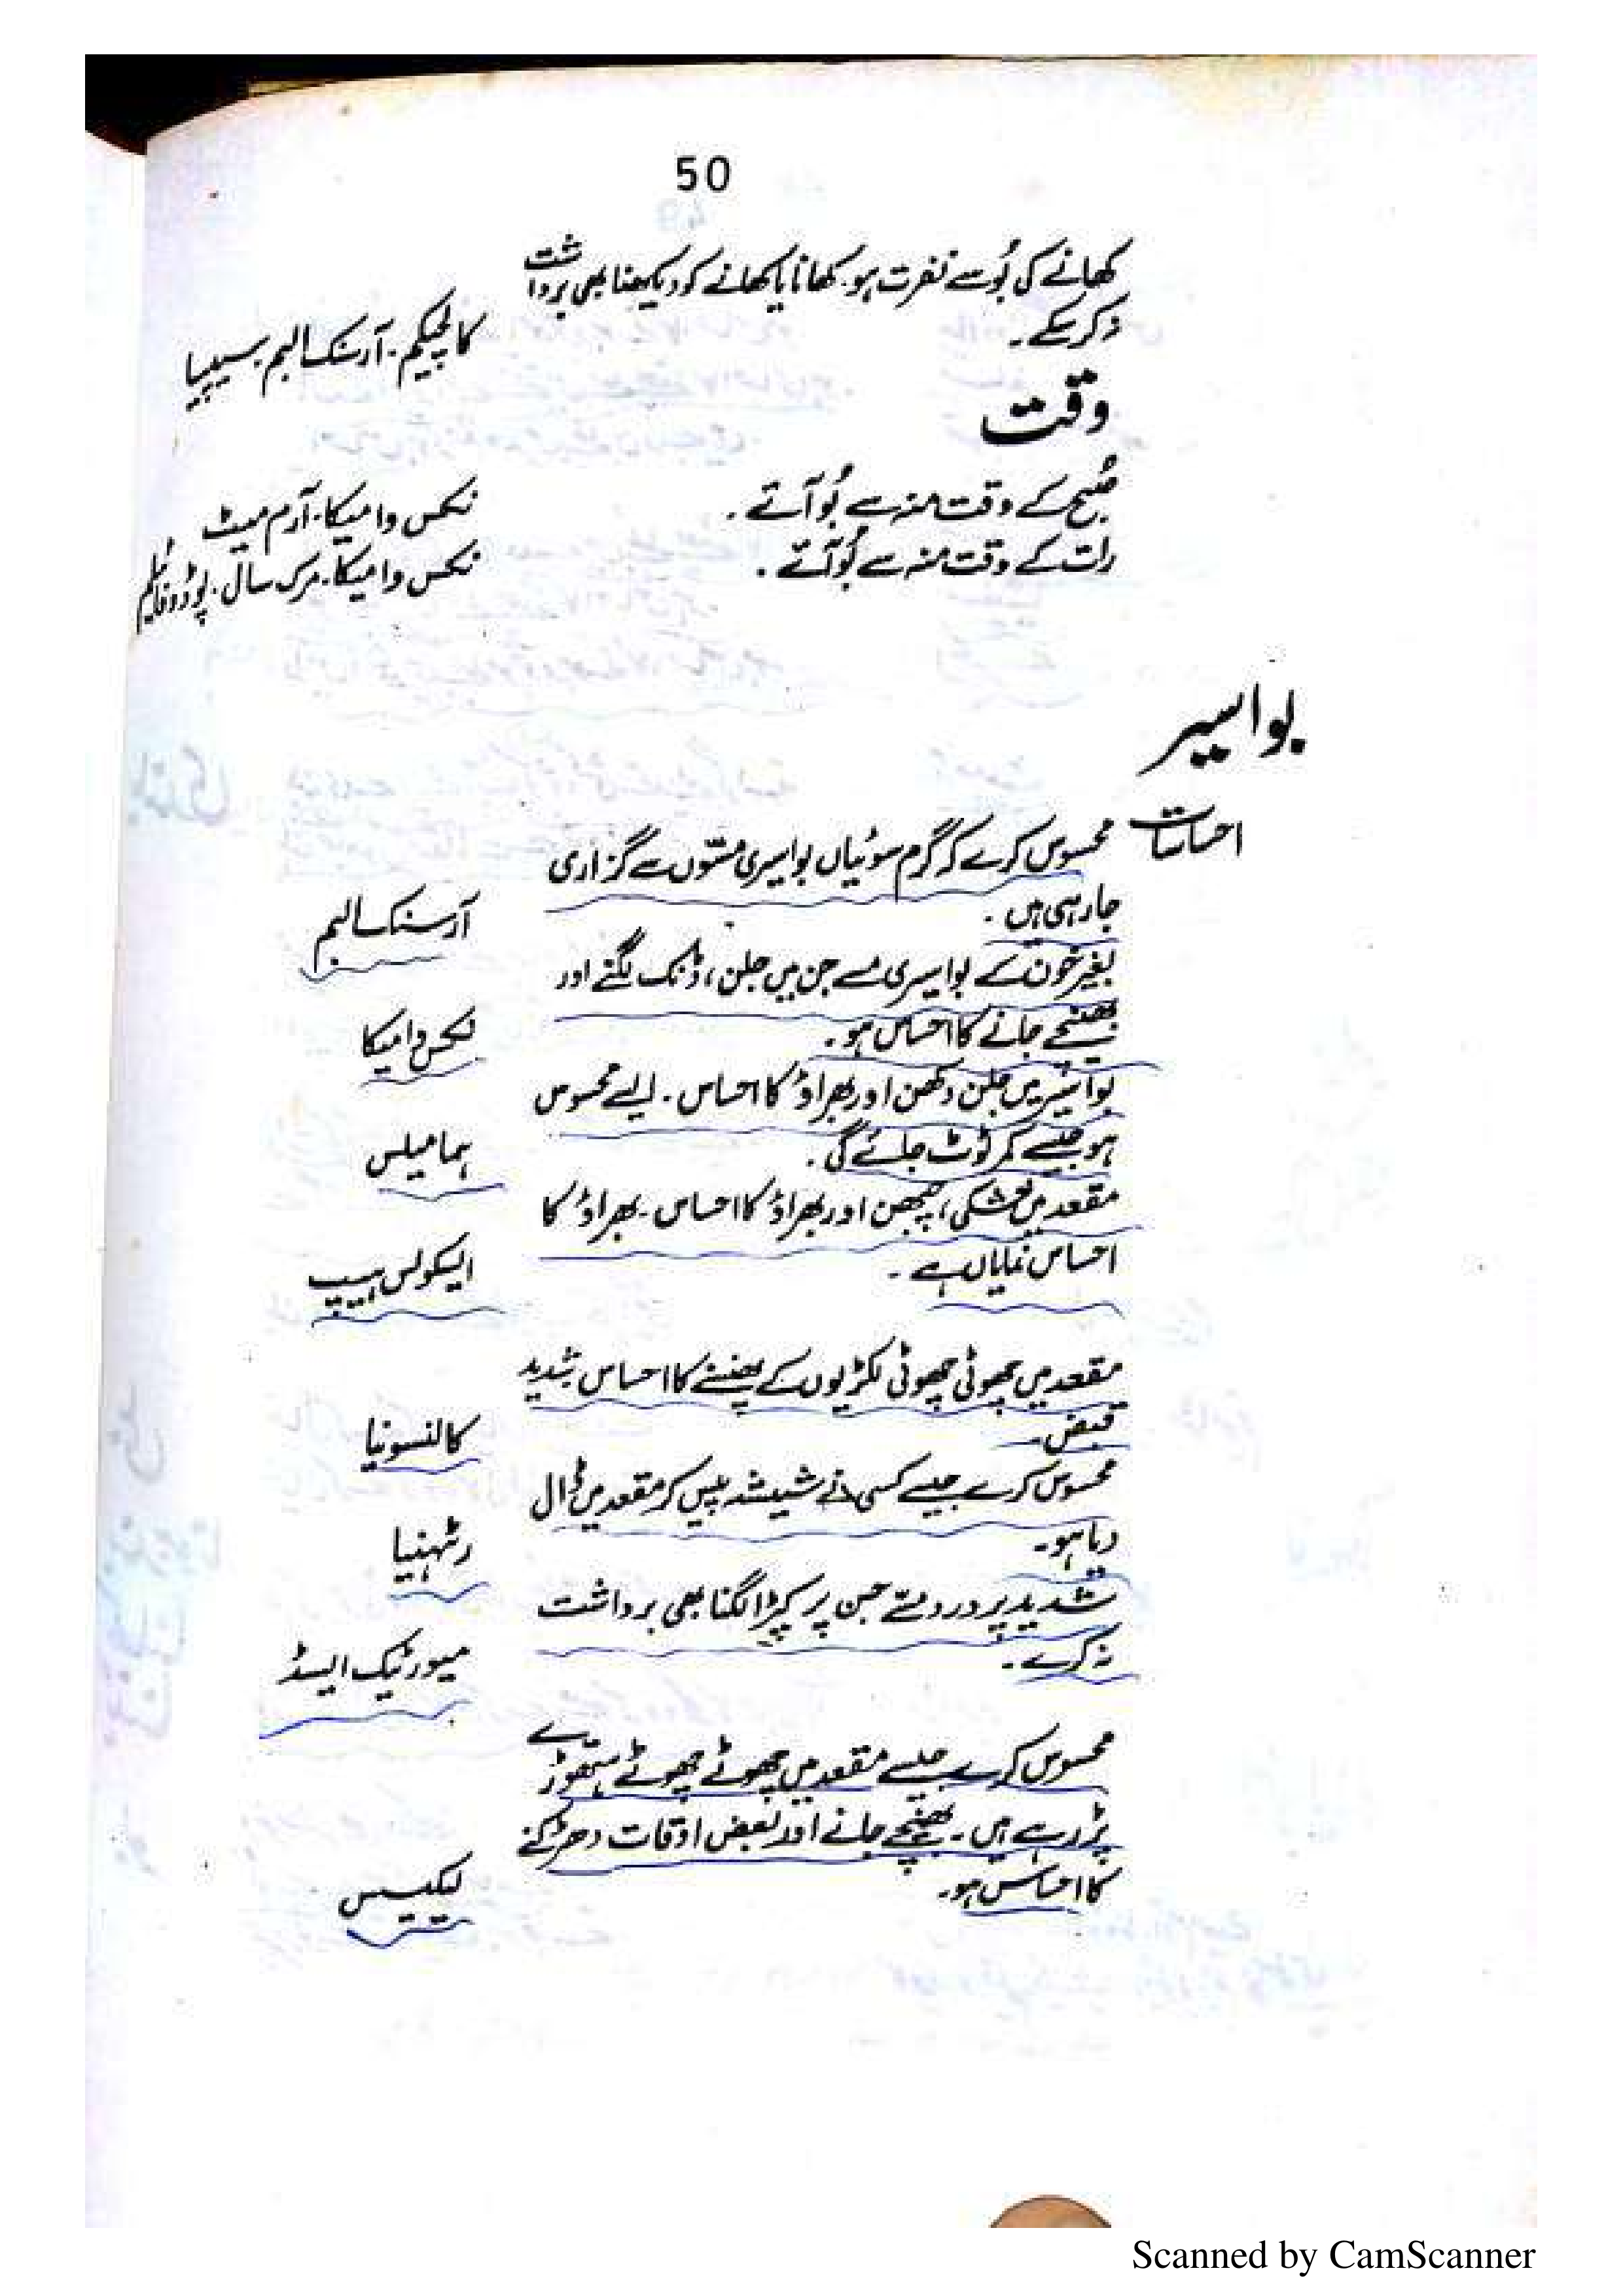 50
کھانے کی بُو سے نفرت ہو۔ کھانا یا کھانے کو دیکھنا بھی برداشت
نہ کر سکے۔
کالچیکم۔ آرسنک البم۔ سیپیا
وقت
صُبح کے وقت منہ سے بُو آئے۔
نکس وامیکا۔ آرم میٹ
رات کے وقت منہ سے بُو آئے۔
نکس وامیکا۔ مرک سال۔ پوڈوفائیلم
بواسیر
احساسات
محسوس کرے کہ گرم سوئیاں بواسیری مسّوں سے گزاری
جا رہی ہیں۔
آرسنک البم
بغیر خون کے بواسیری مسے جن میں جلن، ڈنک لگنے اور
بھینچے جانے کا احساس ہو۔
نکس وامیکا
بواسیر میں جلن دکھن اور بھراؤ کا احساس۔ ایسے محسوس
ہو جیسے کمر ٹوٹ جائے گی۔
ہمامیلس
مقعد میں خشکی، چبھن اور بھراؤ کا احساس۔ بھراؤ کا
احساس نمایاں ہے۔
ایسکولس ہیپ
مقعد میں چھوٹی چھوٹی لکڑیوں کے پھنسنے کا احساس شدید
قبض۔
کالنسونیا
محسوس کرے جیسے کسی نے شیشہ پیس کر مقعد میں ڈال
دیا ہو۔
رٹہنیا
شدید پر درد مسّے جن پر کپڑا لگنا بھی برداشت
نہ کرے۔
میورٹیک ایسڈ
محسوس کرے جیسے مقعد میں چھوٹے چھوٹے ہتھوڑے
پڑ رہے ہیں۔ بھینچے جانے اور بعض اوقات دھڑکنے
کا احساس ہو۔
لیکیسس
Scanned by CamScanner